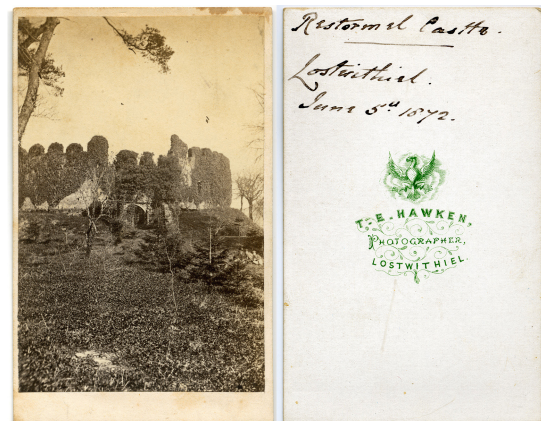 Restormel Castle.
Lostwithiel.
June 5th 1872.
T. E. HAWKEN,
PHOTOGRAPHER,
LOSTWITHIEL.